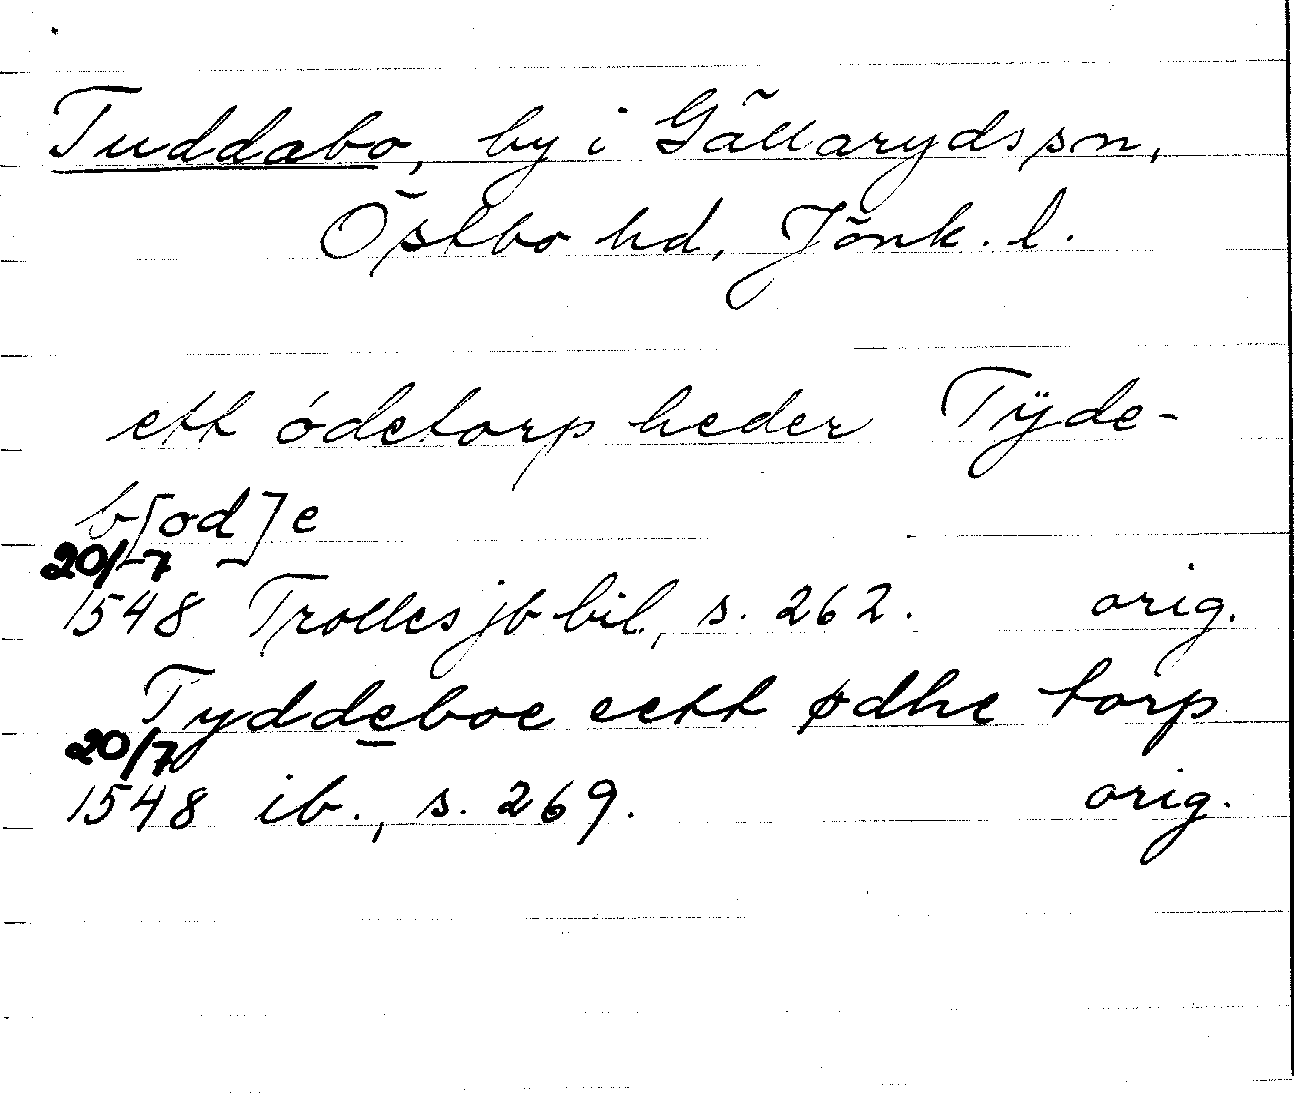 Tuddabo, by i Gällaryds sn,
Östbo hd, Jönk. l.
ett ódetorp heder Tÿde-
b[od]e
20/7
1548 Trolles jb bil., s. 262. orig.
Tyddeboe eett ødhe torp
20/7
1548 ib., s. 269. orig.